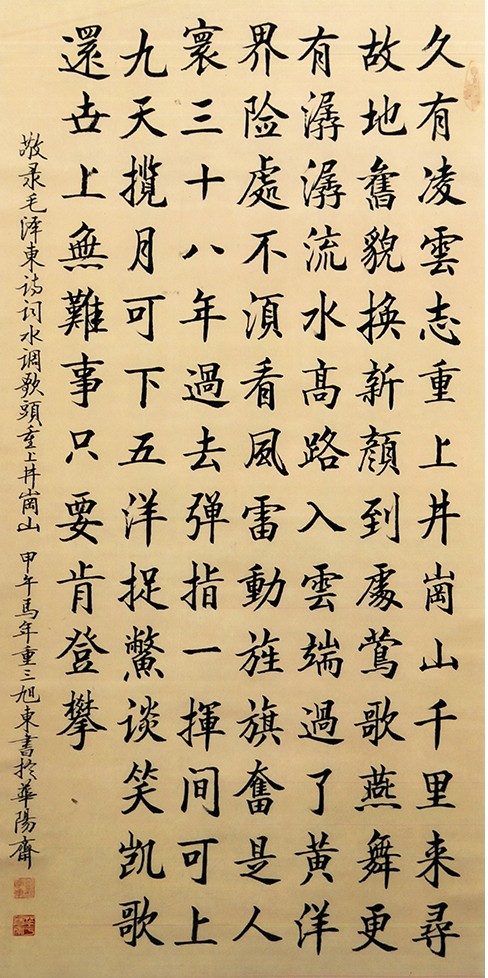 久有凌雲志重上井崗山千里来尋
故地舊貌换新顔到處莺歌燕舞更
有潺潺流水高路入雲端過了黄洋
界险處不須看風雷動旌旗奮是人
寰三十八年過去弹指一揮间可上
九天揽月可下五洋捉鱉谈笑凯歌
還世上無難事只要肯登攀
敬录毛泽東诗词水调歌頭重上井崗山 甲午馬年重三旭東書於華陽齋